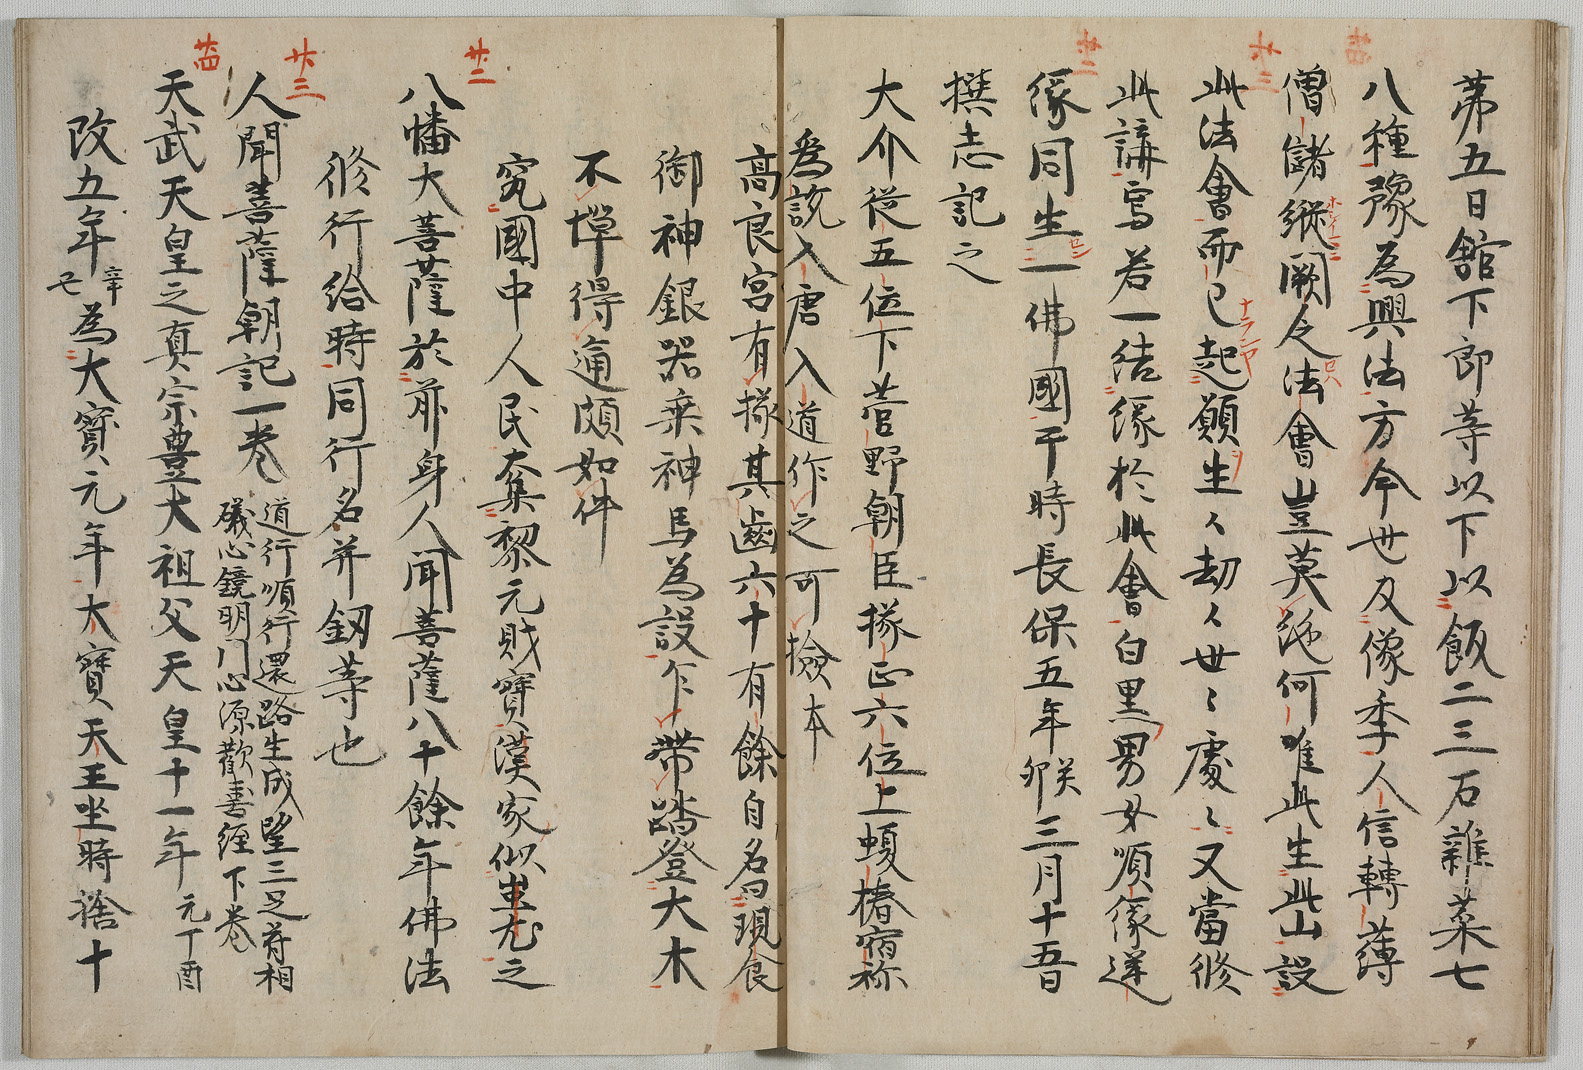 第五日舘下郎等以下以飯二三石雜菜七
八種豫為興法方今世及像季人信轉薄
僧儲縱闕之法會豈莫絶何唯此生此山設
此法會而已起願生〻劫〻世〻處〻又當修
此講寫若一結縁於此會白黒男女順縁逆
縁同生一佛國于時長保五年癸卯三月十五日
撰志記之
大介従五位下菅野朝臣掾正六位上蝮椿宿祢
為説入唐入道作之可撿本
高良宮有掾其齒六十有餘自名曰現食
御神銀器乗神馬為設乍帯踏登大木
不憚得通頗如件
廿二
究國中人民奪黎元財寶漢家似蚩尤之
八幡大菩薩於前身人聞菩薩八十餘年佛法
修行給時同行名并釼等也
廿三
人聞菩薩朝記一巻
道行順行還路生成望三足荷相
礒心鏡明門心源歡善經下巻
廿四
天武天皇之真宗豊大祖父天皇十一年元丁酉
改五年辛丑為大寶元年大寶天王坐時捨十